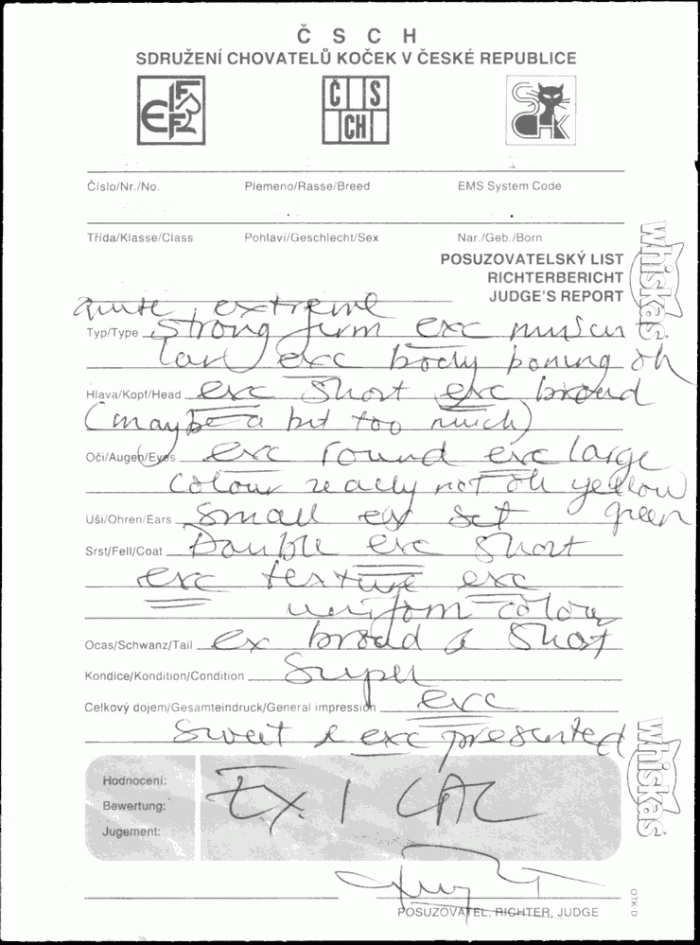 Č S C H
SDRUŽENÍ CHOVATELŮ KOČEK V ČESKÉ REPUBLICE
FIFE
ČS
CH
SCHK
Číslo/Nr./No. Plemeno/Rasse/Breed EMS System Code
Třída/Klasse/Class Pohlaví/Geschlecht/Sex Nar./Geb./Born
POSUZOVATELSKÝ LIST
RICHTERBERICHT
JUDGE'S REPORT
whiskas
quite extreme
Typ/Type strong firm exc muscu
lar exc body boning oh
Hlava/Kopf/Head exc short exc broad
(maybe a bit too much)
Oči/Augen/Eyes exc round exc large
colour really not oh yellow
green
Uši/Ohren/Ears small ex set
Srst/Fell/Coat Double exc short
exc texture exc
uniform colour
Ocas/Schwanz/Tail ex broad & short
Kondice/Kondition/Condition Super
Celkový dojem/Gesamteindruck/General impression exc
sweet & exc presented
whiskas
Hodnocení:
Bewertung: EX. 1 CAC
Jugement:
POSUZOVATEL, RICHTER, JUDGE
OTK D